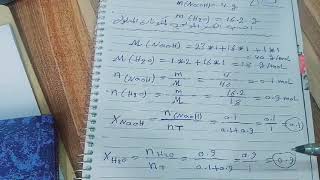 m(NaOH) = 4 g
m(H2O) = 16.2 g
M(NaOH) = 23*1+16*1+1*1
= 40 g/mol
M(H2O) = 1*2+16*1 = 18 g/mol
n(NaOH) = m/M = 4/40 = 0.1 mol
n(H2O) = m/M = 16.2/18 = 0.9 mol
XNaOH = n(NaOH)/nT = 0.1/0.1+0.9 = 0.1/1 = 0.1
XH2O = nH2O/nT = 0.9/0.1+0.9 = 0.9/1 = 0.9